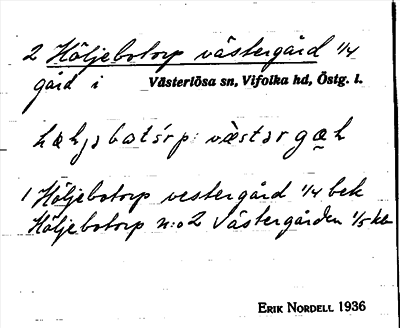 2 Höljebotorp västergård 1/4
gård i Västerlösa sn, Vifolka hd, Östg. l.
1 Höljebotorp vestergård 1/4 bek
Höljebotorp n:o 2 Västergården 1/5
ERIK NORDELL 1936